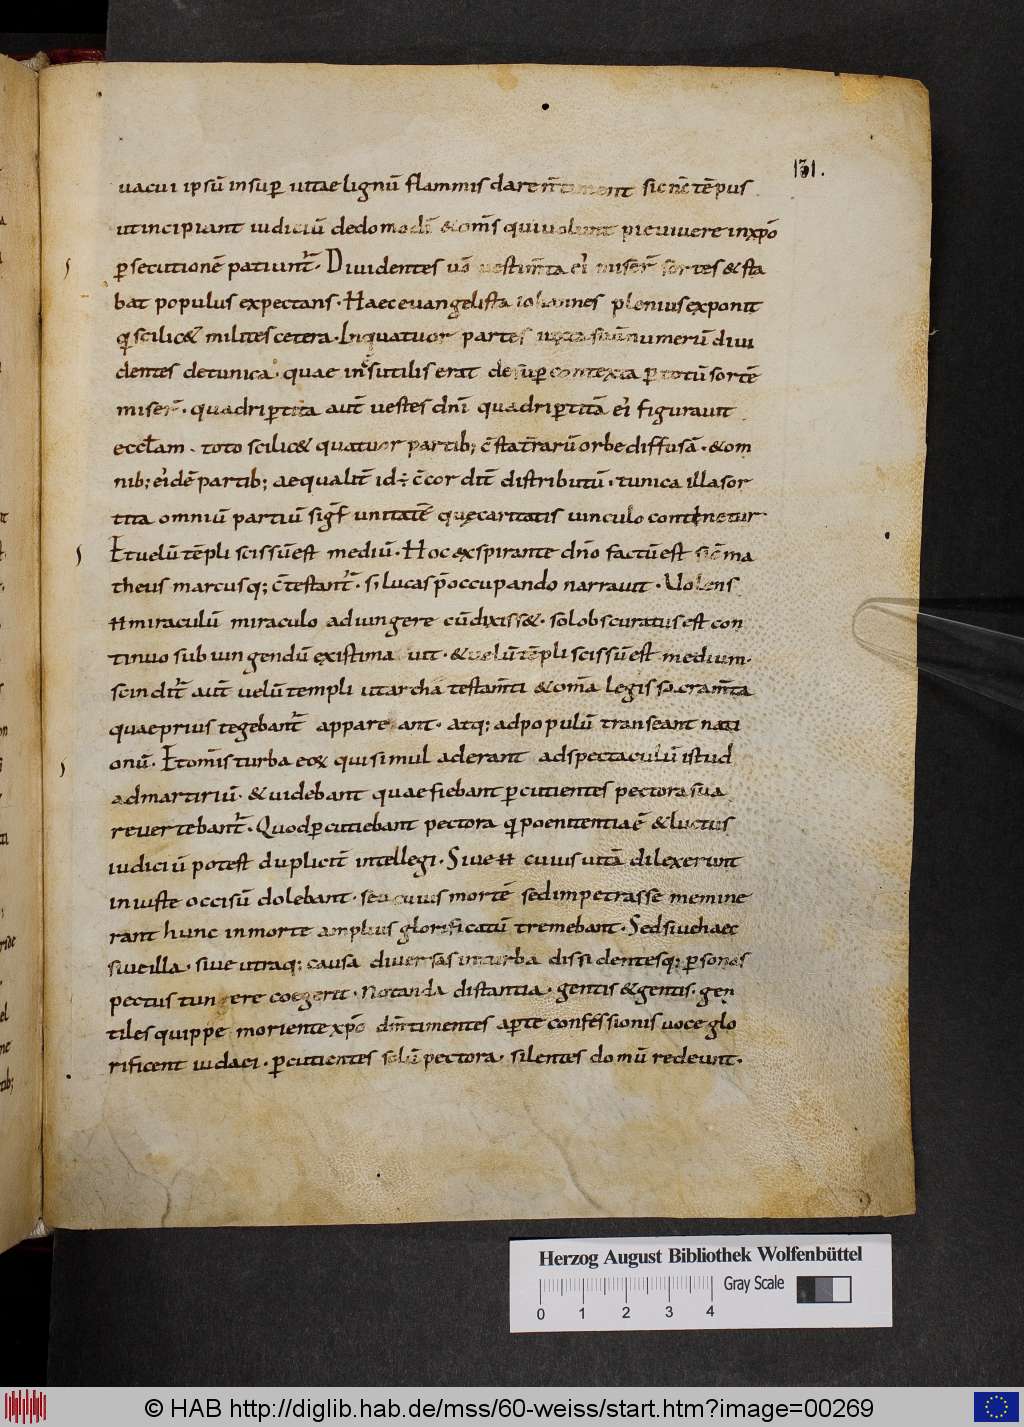 131.
uacui ipsū insup uitae lignū flammis darent sic nc tēpus
ut incipiant iudiciū de domo dī & oms qui uolunt pie uiuere in xpō
psecutionē patiunt̄ · Diuidentes uō uestimta ei miser̄ sortes & sta
bat populus expectans · Haec euangelista iohannes plenius exponit
q scilic& milites cetera · In quatuor partes iuxta suū numerū diui
dentes de tunica · quae insutilis erat desup contexta p totū sortē
miser̄ · quadriptita aut̄ uestes dnī quadriptitā ei figurauit
eccl̄am · toto scilic& quatuor partib; c̄stat̄ rarū orbe diffusā · & om
nib; ei'dē partib; aequalit̄ id ÷ c̄cordit̄ distributū · tunica illa sor
tita omniū partiū sigf unitatē quę caritatis uinculo continetur
Et uelū tēpli scissū est mediū · Hoc exspirante dnō factū est sic ma
theus marcusq; c̄testant̄ · si lucas p̄occupando narrauit · Uolens
miraculū miraculo adiungere cū dixiss& · sol obscuratus est con
tinuo subiungendū existimauit · & uelū tēpli scissū est medium ·
scindit̄ aut̄ uelū templi ut archa testam̄ti & om̄a legis sacram̄ta
quae prius tegebant̄ appareant · atq; ad populū transeant nati
onū · Et om̄is turba eoꝝ qui simul aderant ad spectaculū istud
ad martiriū · & uidebant quae fiebant pcutientes pectora sua
reuertebant̄ · Quod pcutiebant pectora q poenitentiae & luctus
iudiciū potest duplicit̄ intellegi · Siue cuius uitā dilexerunt
iniuste occisū dolebant · seu cuius mortē sed impetrasse memine
rant hunc in morte amplius glorificatū tremebant · Sed siue haec
siue illa · siue utraq; causa diuersas in turba dissidentesq; psonas
pectus tungere coegerit · Notanda distantia · gentis & gentis · gen
tiles quippe moriente xpō dm̄ timentes apte confessionis uoce glo
rificent iudaei · pcutientes solū pectora · silentes domū redeunt ·
Herzog August Bibliothek Wolfenbüttel
Gray Scale
0 1 2 3 4
© HAB http://diglib.hab.de/mss/60-weiss/start.htm?image=00269